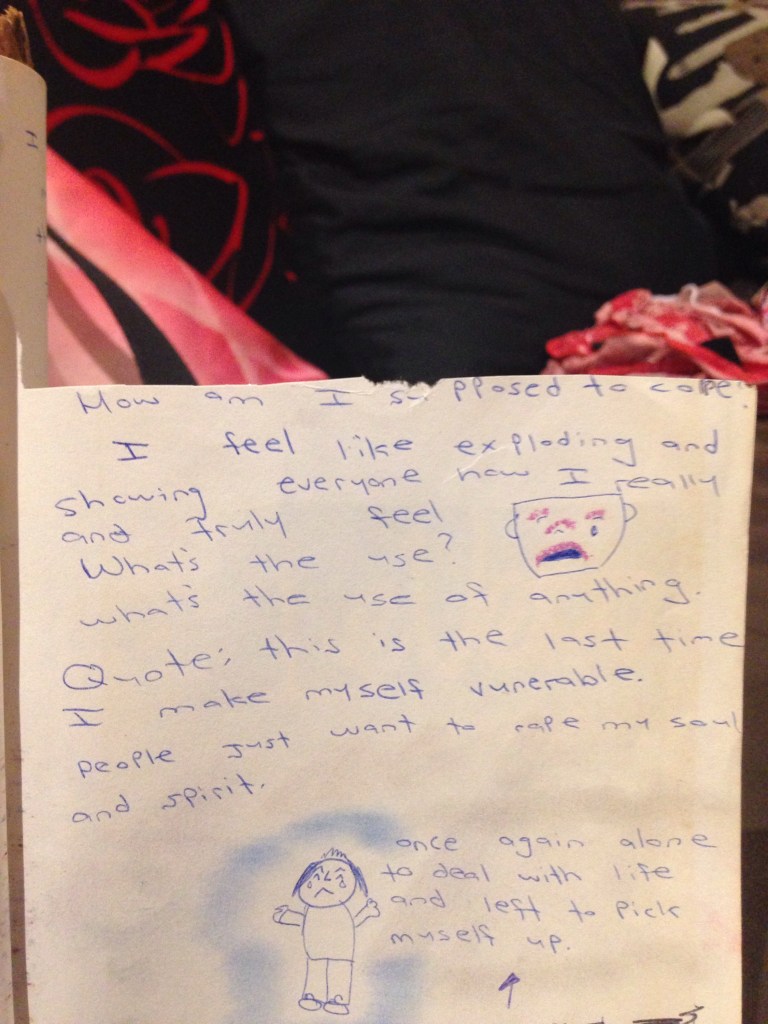 How am I supposed to cope?
I feel like exploding and
showing everyone how I really
and truly feel
What's the use?
what's the use of anything.
Quote; this is the last time
I make myself vunerable.
people just want to rape my soul
and spirit.
once again alone
to deal with life
and left to pick
myself up.